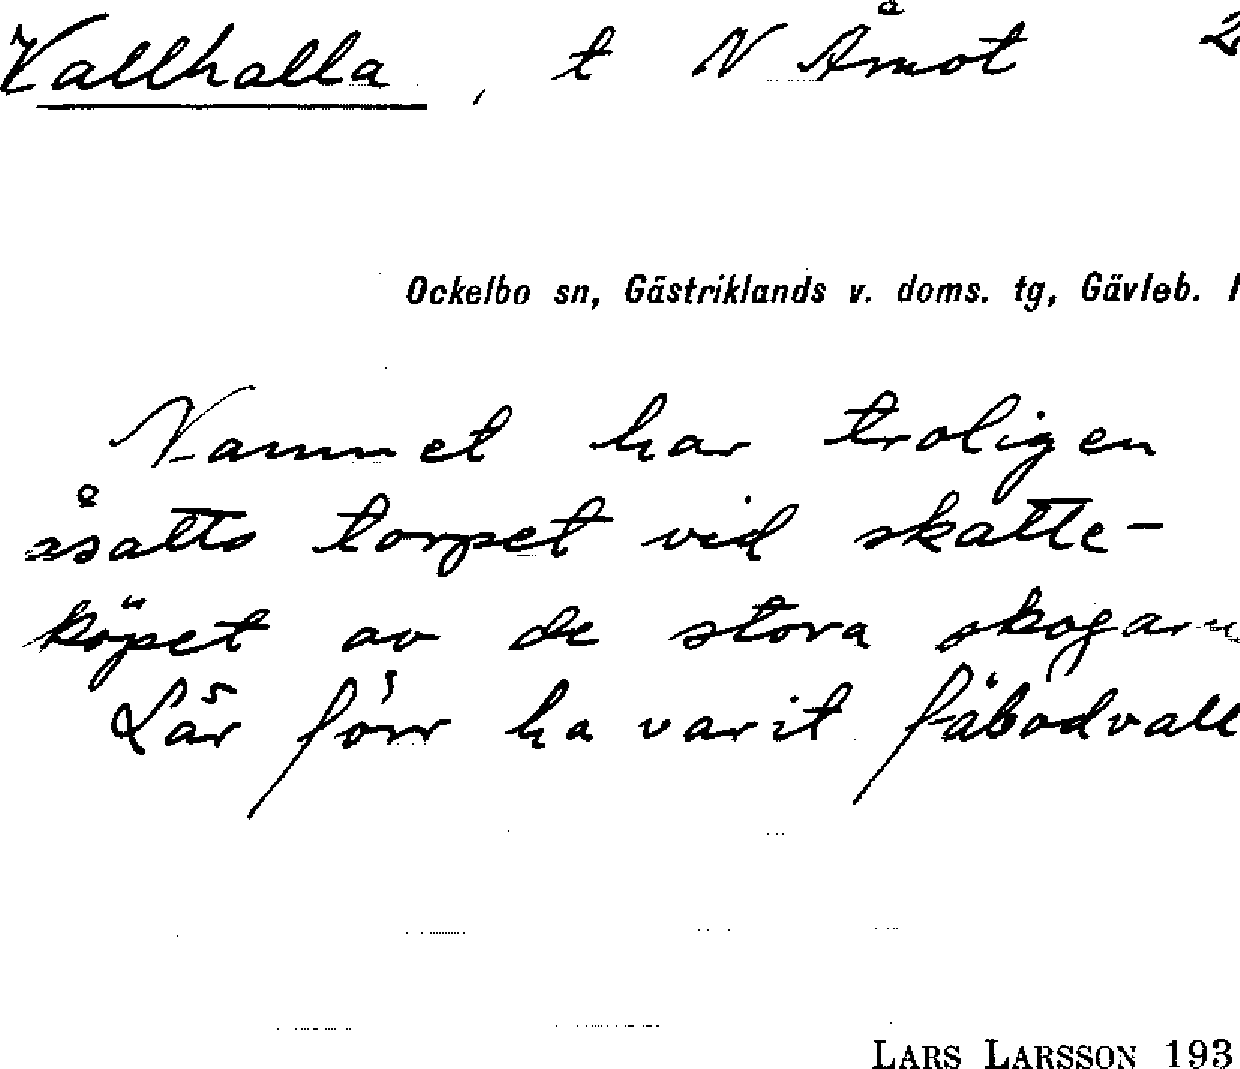 Vallhalla, t N Åmot 2
Ockelbo sn, Gästriklands v. doms. tg, Gävleb.
Namnet har troligen
åsatts torpet vid skatte-
köpet av de stora skogarn
Lär förr ha varit fäbodvall
LARS LARSSON 193